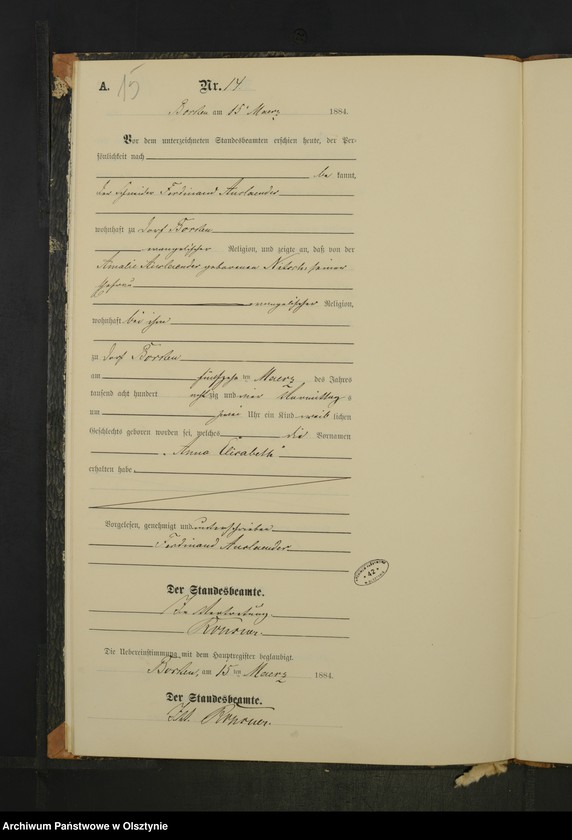 A. 15 Nr. 14
Borken am 15 Maerz 1884.
Vor dem unterzeichneten Standesbeamten erschien heute, der Per-
sönlichkeit nach
be kannt,
der Ferdinand Auslaender
wohnhaft zu Dorf Borken
evangelischer Religion, und zeigte an, daß von der
Amalie Auslaender geborenen seiner
Ehefrau
evangelischer Religion,
wohnhaft bei ihm
zu Dorf Borken
am ten Maerz des Jahres
tausend acht hundert achtzig und vier Vormittag s
um zwei Uhr ein Kind weib lichen
Geschlechts geboren worden sei, welches die Vornamen
„Anna Elisabeth"
erhalten habe
Vorgelesen, genehmigt und unterschrieben
Ferdinand Auslaender
Der Standesbeamte.
In Vertretung
Die Uebereinstimmung mit dem Hauptregister beglaubigt.
Borken, am 15 ten Maerz 1884.
Der Standesbeamte.
Archiwum Państwowe w Olsztynie